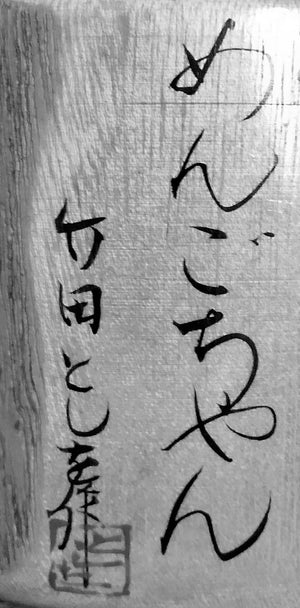 めんごちゃん
竹田とし